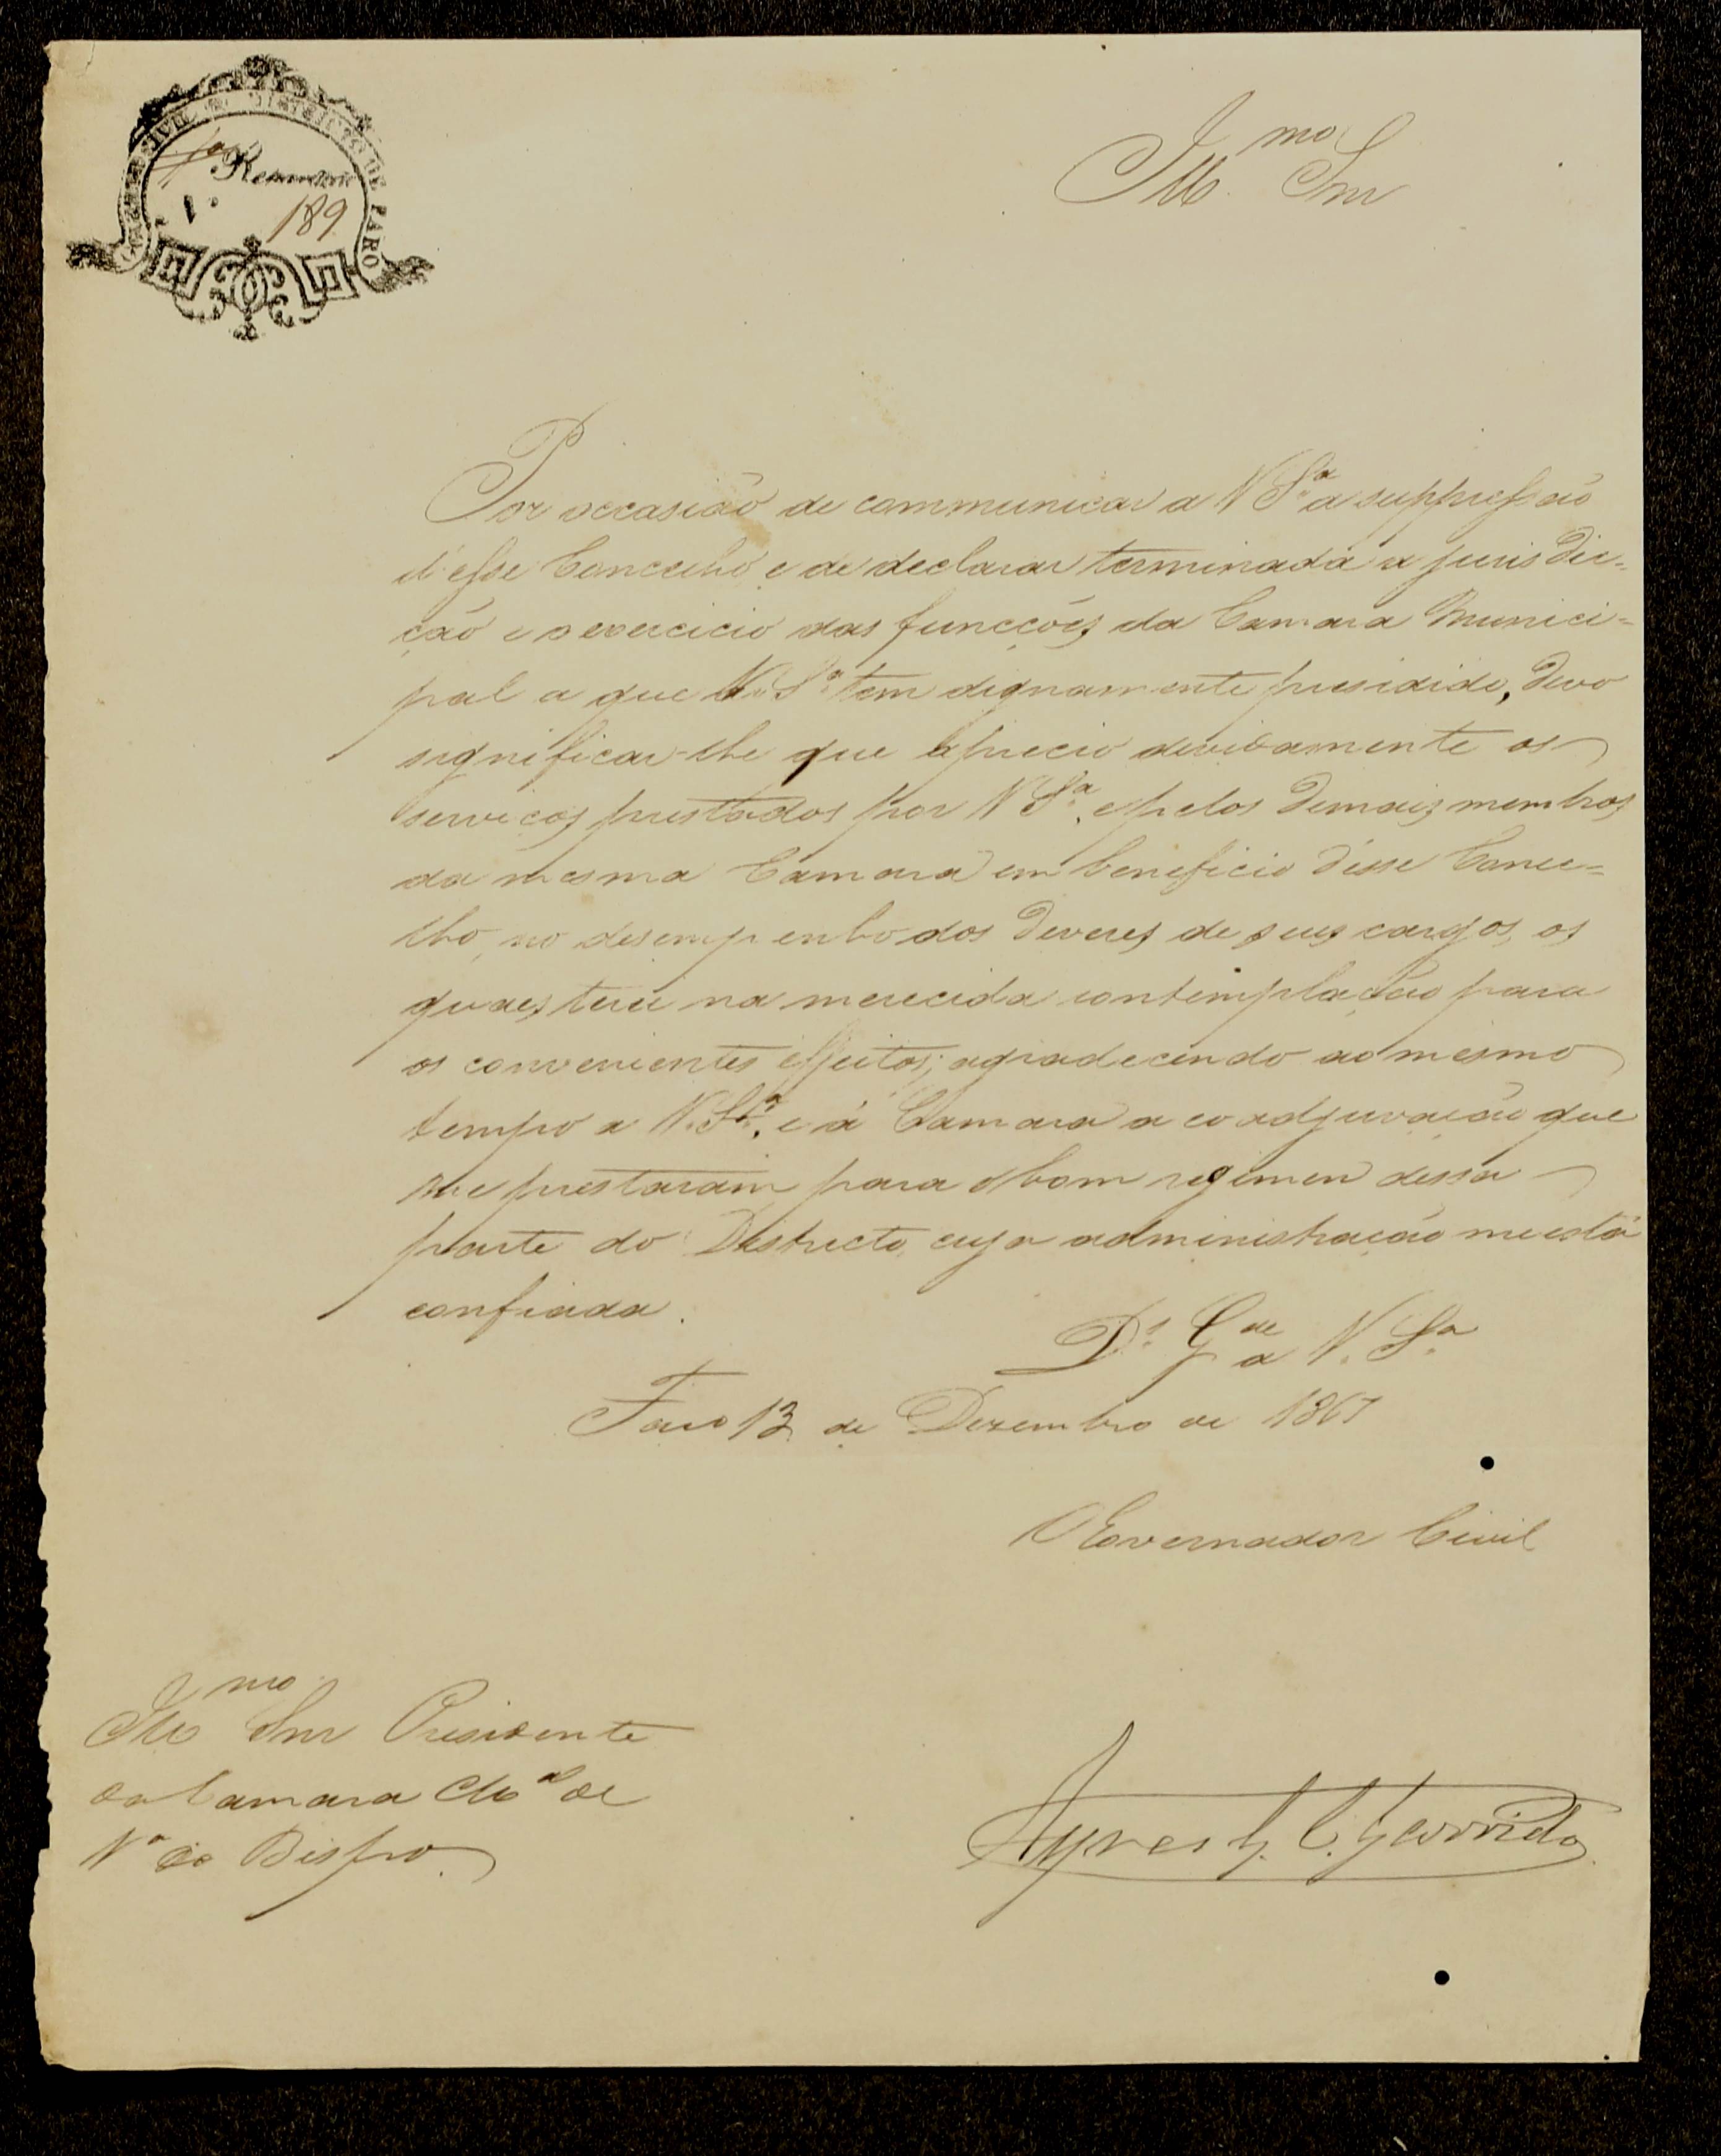 GOVERNO CIVIL DO DISTRICTO DE FARO
1ª Repartição
N.º 189
Illmo Snr
Por occasião de communicar a V Sª a suppressão
d'esse Concelho e de declarar terminada a jurisdic=
ção e o exercicio das funcções da Camara Munici=
pal a que V. Sª tem dignamente presidido, devo
significar-lhe que aprecio devidamente os
serviços prestados por V Sª, e pelos demais membros
da mesma Camara em beneficio d'esse Conce=
lho, no desempenho dos deveres de seus cargos, os
quaes terei na merecida contemplação para
os convenientes effeitos; agradecendo ao mesmo
tempo a V. Sª. e á Camara a coadjuvação que
me prestaram para o bom regimen dessa
parte do Districto, cuja administração me está
confiada.
Ds. Gde a V. Sª
Faro 13 de Dezembro de 1867
O Governador Civil
Illmo Snr Presidente
da Camara Mal de
Vª do Bispo.
Garrido